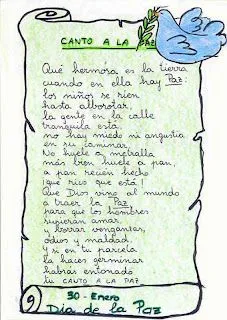 CANTO A LA PAZ
Qué hermosa es la tierra
cuando en ella hay Paz:
los niños se ríen
hasta alborotar,
la gente en la calle
tranquila está,
no hay miedo ni angustia
en su caminar,
No huele a metralla
más bien huele a pan,
a pan recién hecho
¡que rico que está!
que Dios vino al mundo
a traer la Paz
para que los hombres
supieran amar
y borrar venganzas,
odios y maldad.
y si en tu parcela
la haces germinar
habrás entonado
tu CANTO A LA PAZ
30 - Enero
Día de la Paz